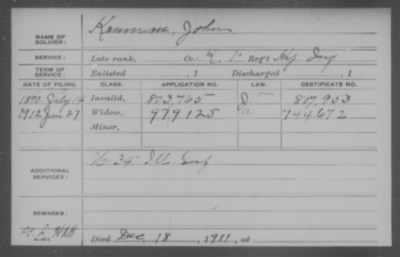 NAME OF SOLDIER: John
SERVICE: Late rank, Co. Reg't Inf
TERM OF SERVICE: Enlisted , 1 Discharged , 1
DATE OF FILING. CLASS. APPLICATION NO. LAW. CERTIFICATE NO.
1890 July 14 Invalid, 803,765 807,953
1912 Jan 27 Widow, 979125 744672
Minor,
ADDITIONAL SERVICES: 34" Ill. Inf
REMARKS:
Died Dec. 18, 1911, at